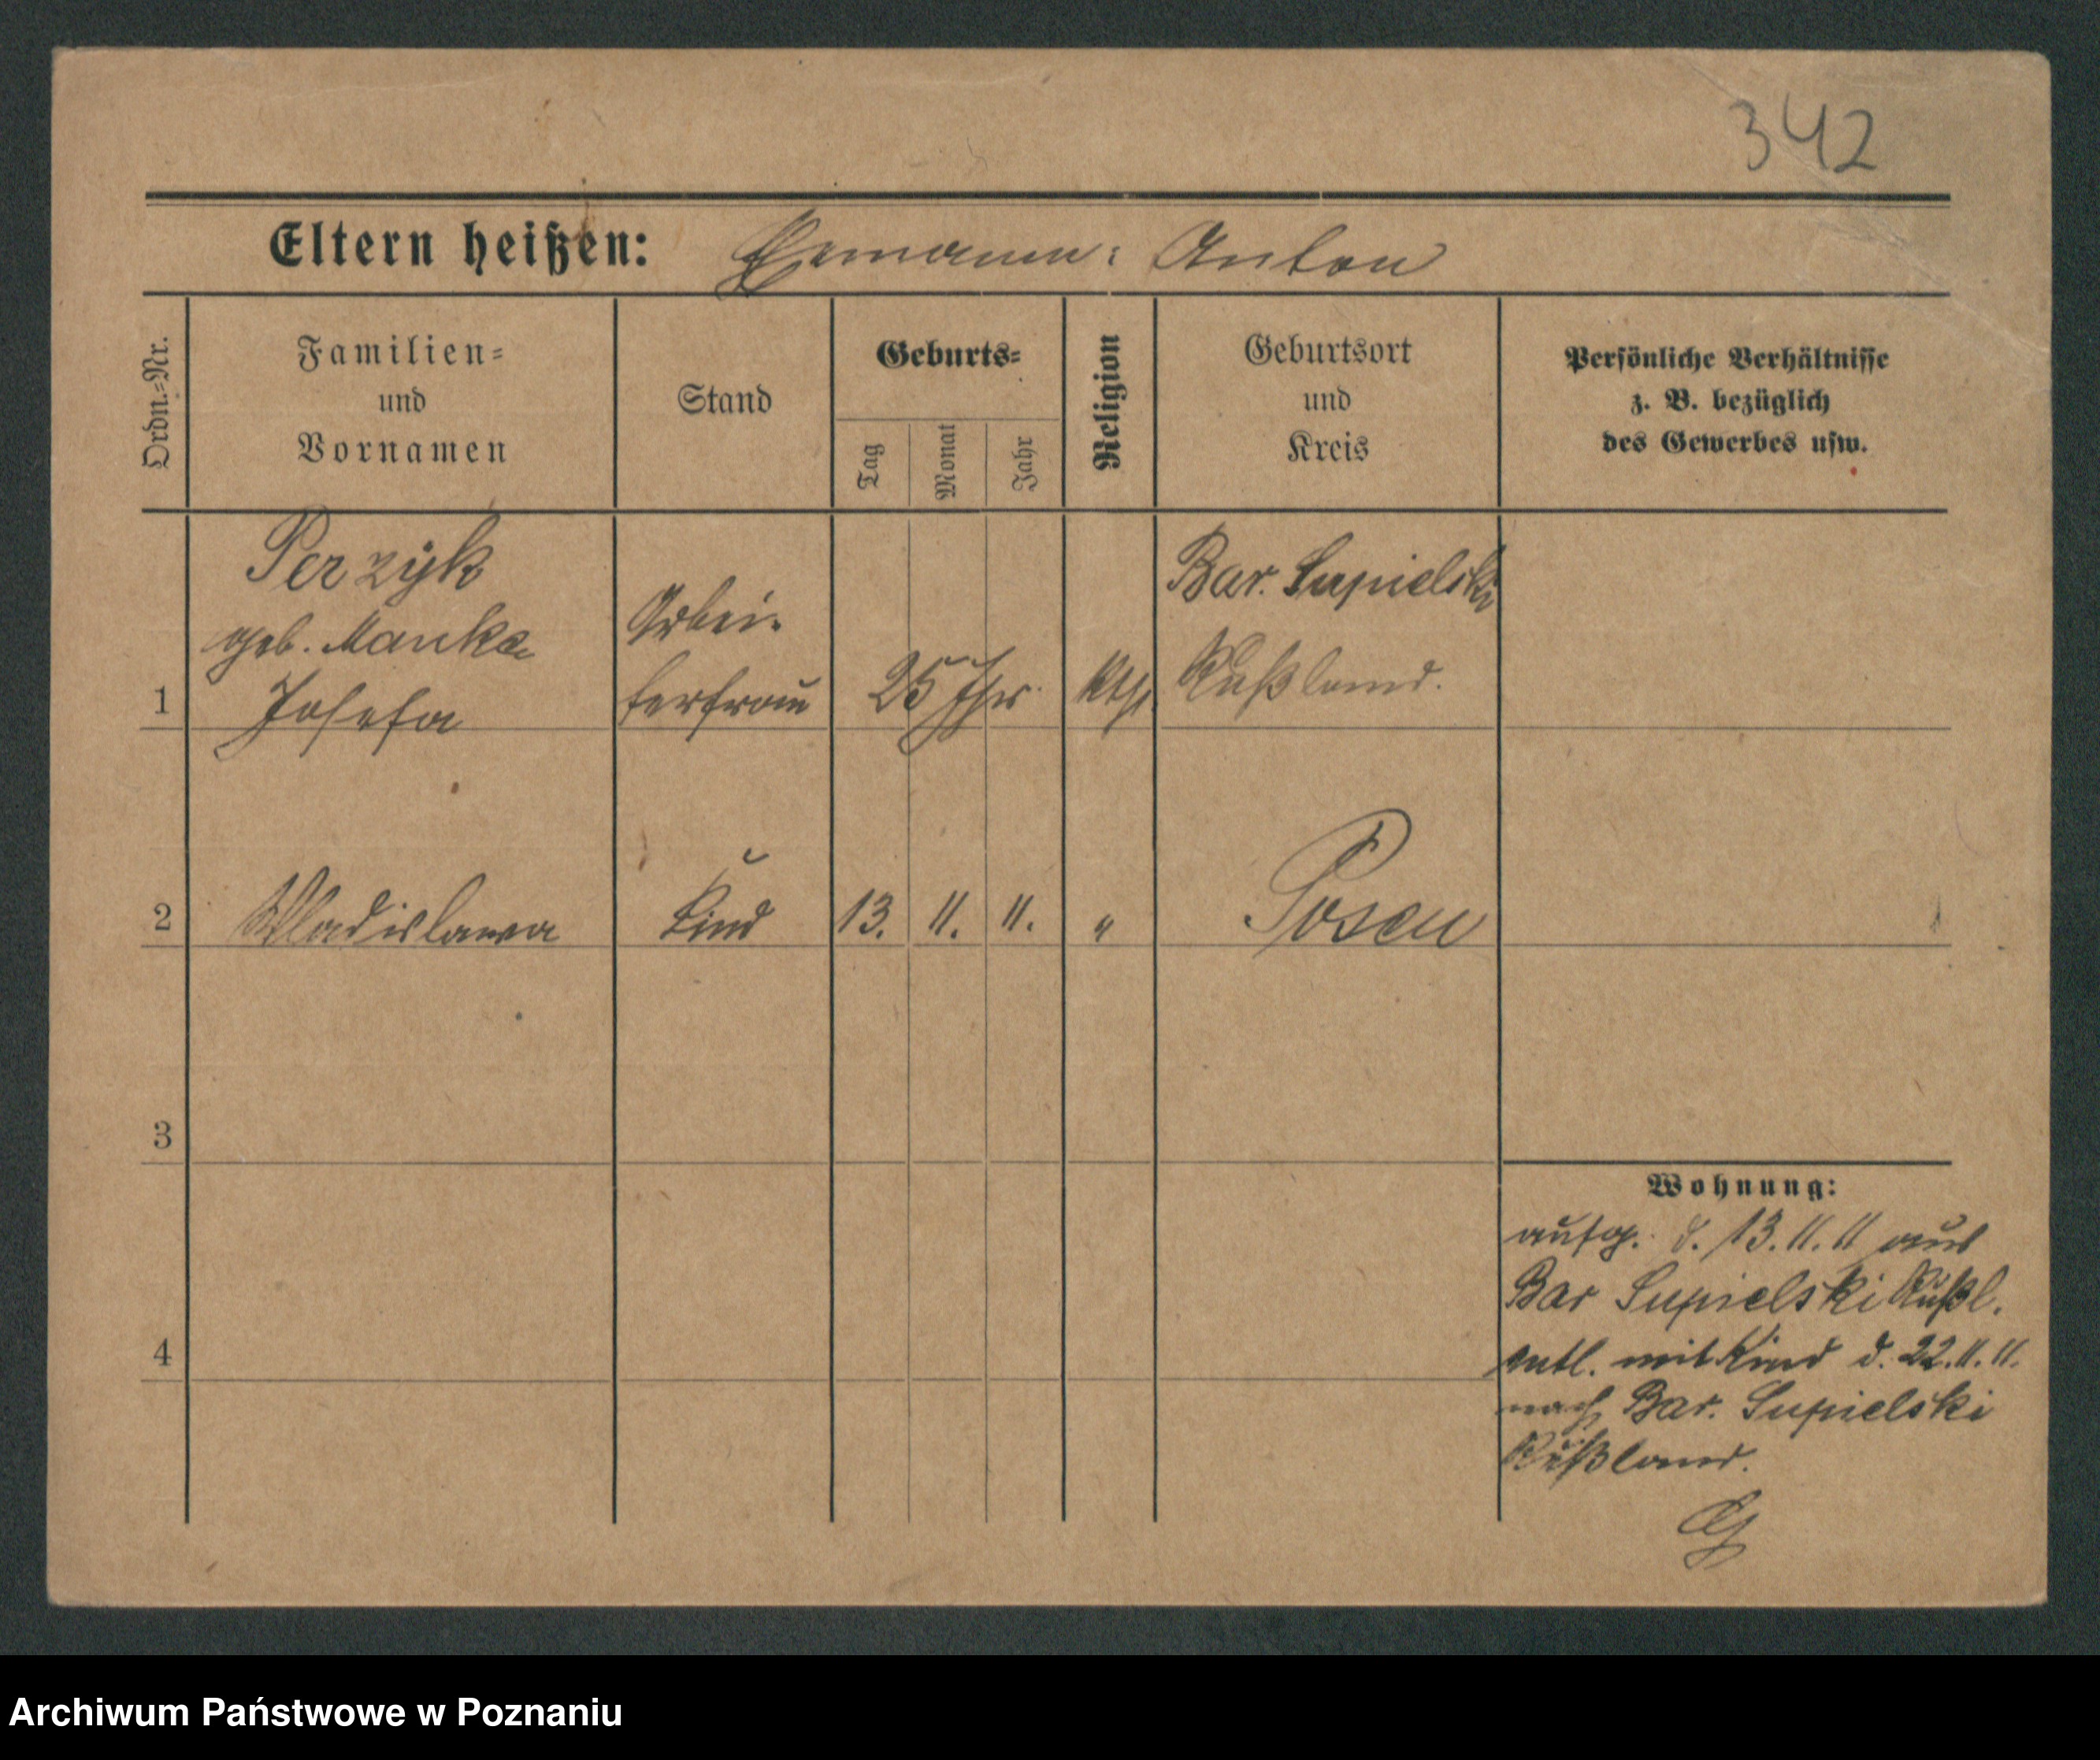 342
Eltern heißen: Ehemann: Anton
Ordn.-Nr.
Familien-
und
Vornamen
Stand
Geburts-
Tag
Monat
Jahr
Religion
Geburtsort
und
Kreis
Persönliche Verhältnisse
z. B. bezüglich
des Gewerbes usw.
1
Perzyk
geb. Manka
Josefa
Arbei-
terfrau
25 Jhr.
kth.
Bar. Supielski
Rußland.
2
Wladislawa
Kind
13. 11. 11.
"
Posen
3
4
Wohnung:
aufg. d. 13.11.11 aus
Bar Supielski Rußl.
entl. mit Kind d. 22.11.11.
nach Bar. Supielski
Rußland.
Archiwum Państwowe w Poznaniu